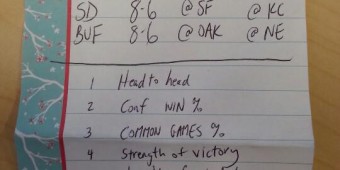 SD 8-6 @SF @KC
BUF 8-6 @OAK @NE
1 Head to head
2 Conf WIN %
3 COMMON GAMES %
4 Strength of victory